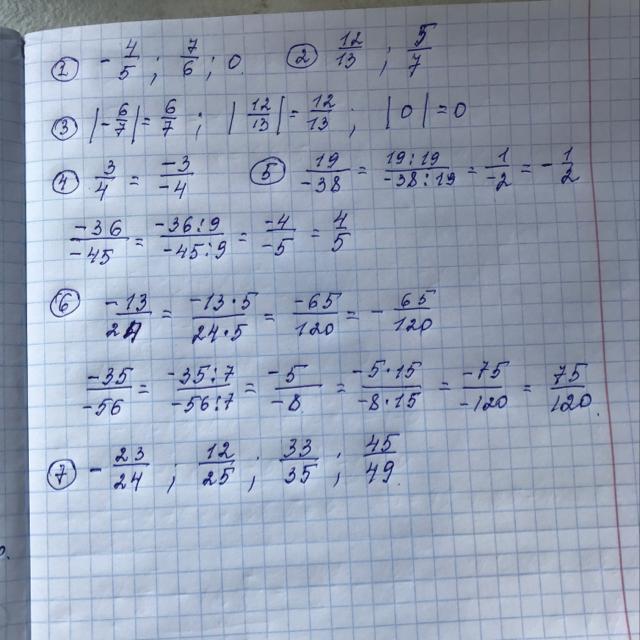 ① -4/5 ; 7/6 ; 0. ② 12/13 ; 5/7
③ |-6/7| = 6/7 ; |12/13| = 12/13 ; |0| = 0
④ 3/4 = -3/-4 ⑤ 19/-38 = 19:19/-38:19 = 1/-2 = -1/2
-36/-45 = -36:9/-45:9 = -4/-5 = 4/5
⑥ -13/24 = -13·5/24·5 = -65/120 = -65/120
-35/-56 = -35:7/-56:7 = -5/-8 = -5·15/-8·15 = -75/-120 = 75/120.
⑦ -23/24 ; 12/25 ; 33/35 ; 45/49.